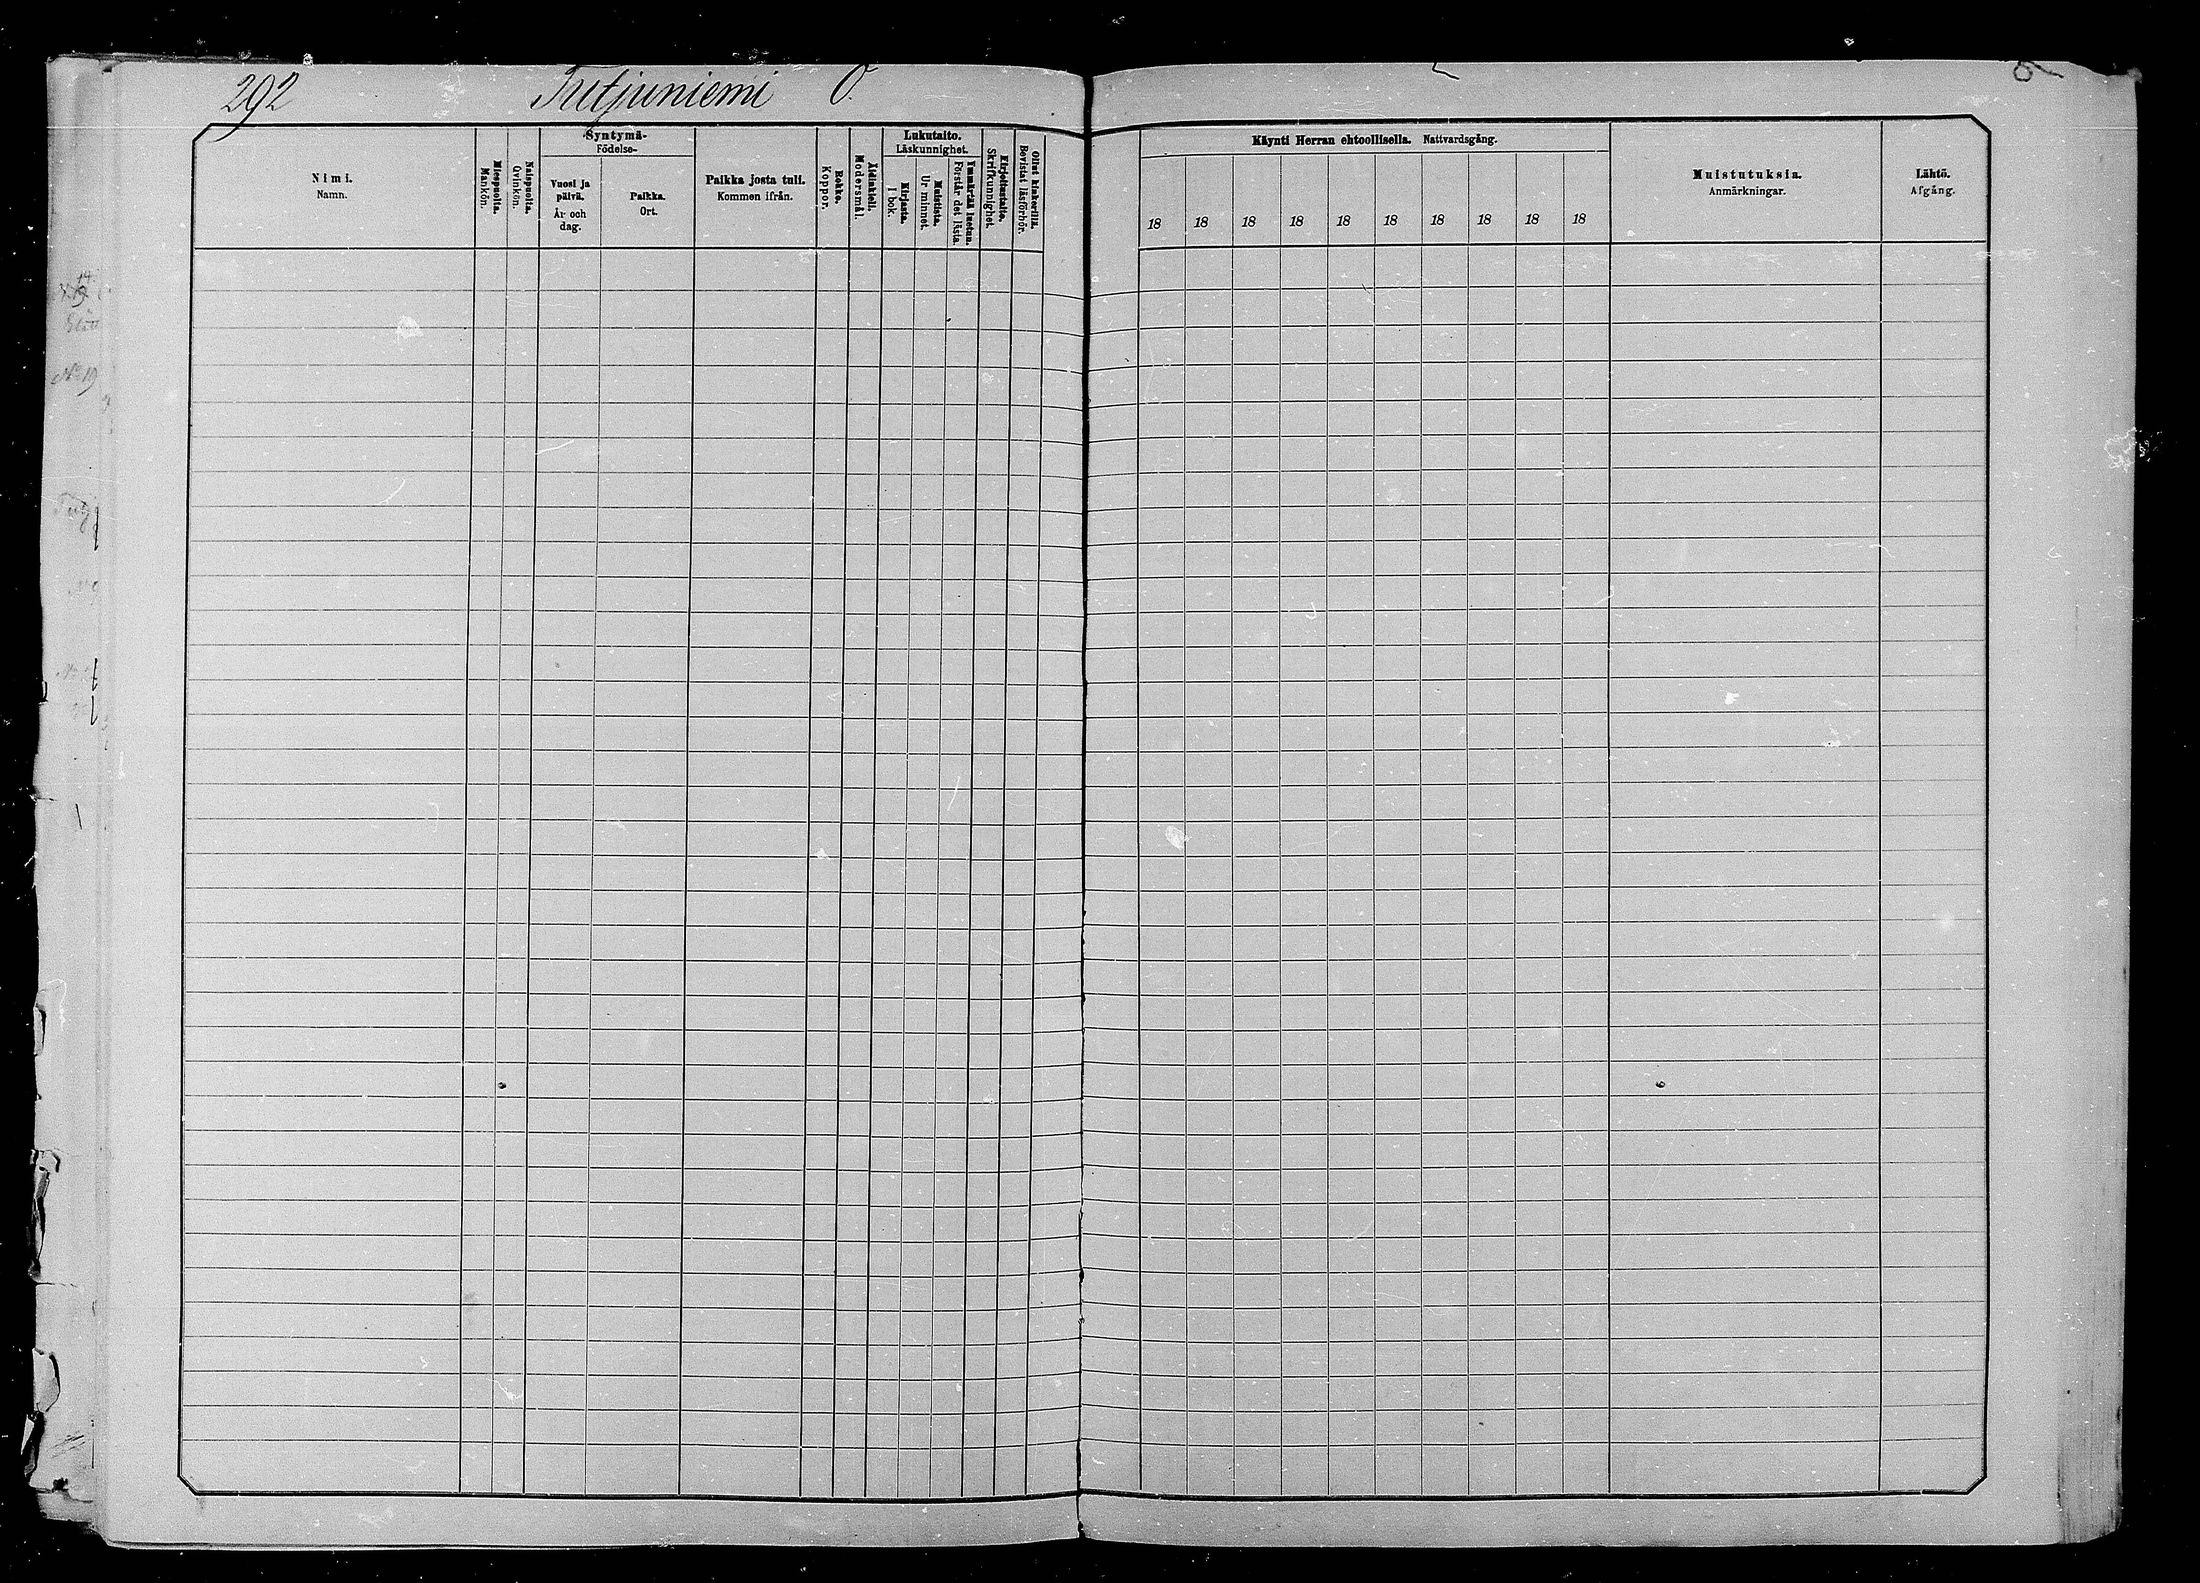 292 Tutjuniemi O.
Nimi.
Namn.
Miespuolta.
Mankön.
Naispuolta.
Qvinkön.
Syntymä-
Födelse-
Vuosi ja
päivä.
År och
dag.
Paikka.
Ort.
Paikka josta tuli.
Kommen ifrån.
Rokko.
Koppor.
Äidinkieli.
Modersmål.
Lukutaito.
Läskunnighet.
Kirjasta.
I bok.
Muistista.
Ur minnet.
Ymmärtää luetun.
Förstår det lästa.
Kirjoitustaito.
Skrifkunnighet.
Ollut kinkerillä.
Bevistat läsförhör.
Käynti Herran ehtoollisella. Nattvardsgång.
18 18 18 18 18 18 18 18 18 18
Muistutuksia.
Anmärkningar.
Lähtö.
Afgång.